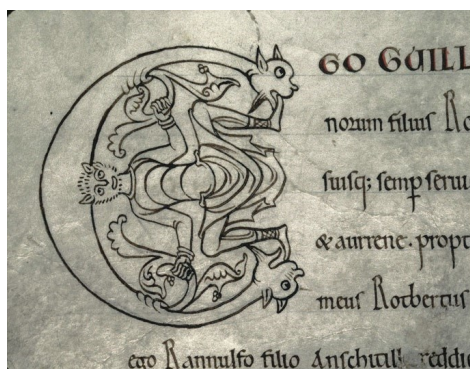 GO GUILL
norum filius Ro
suisq; semp serui
& aurrene. propt
meus Rotbertus
ego Rannulfo filio Anschitill reddi